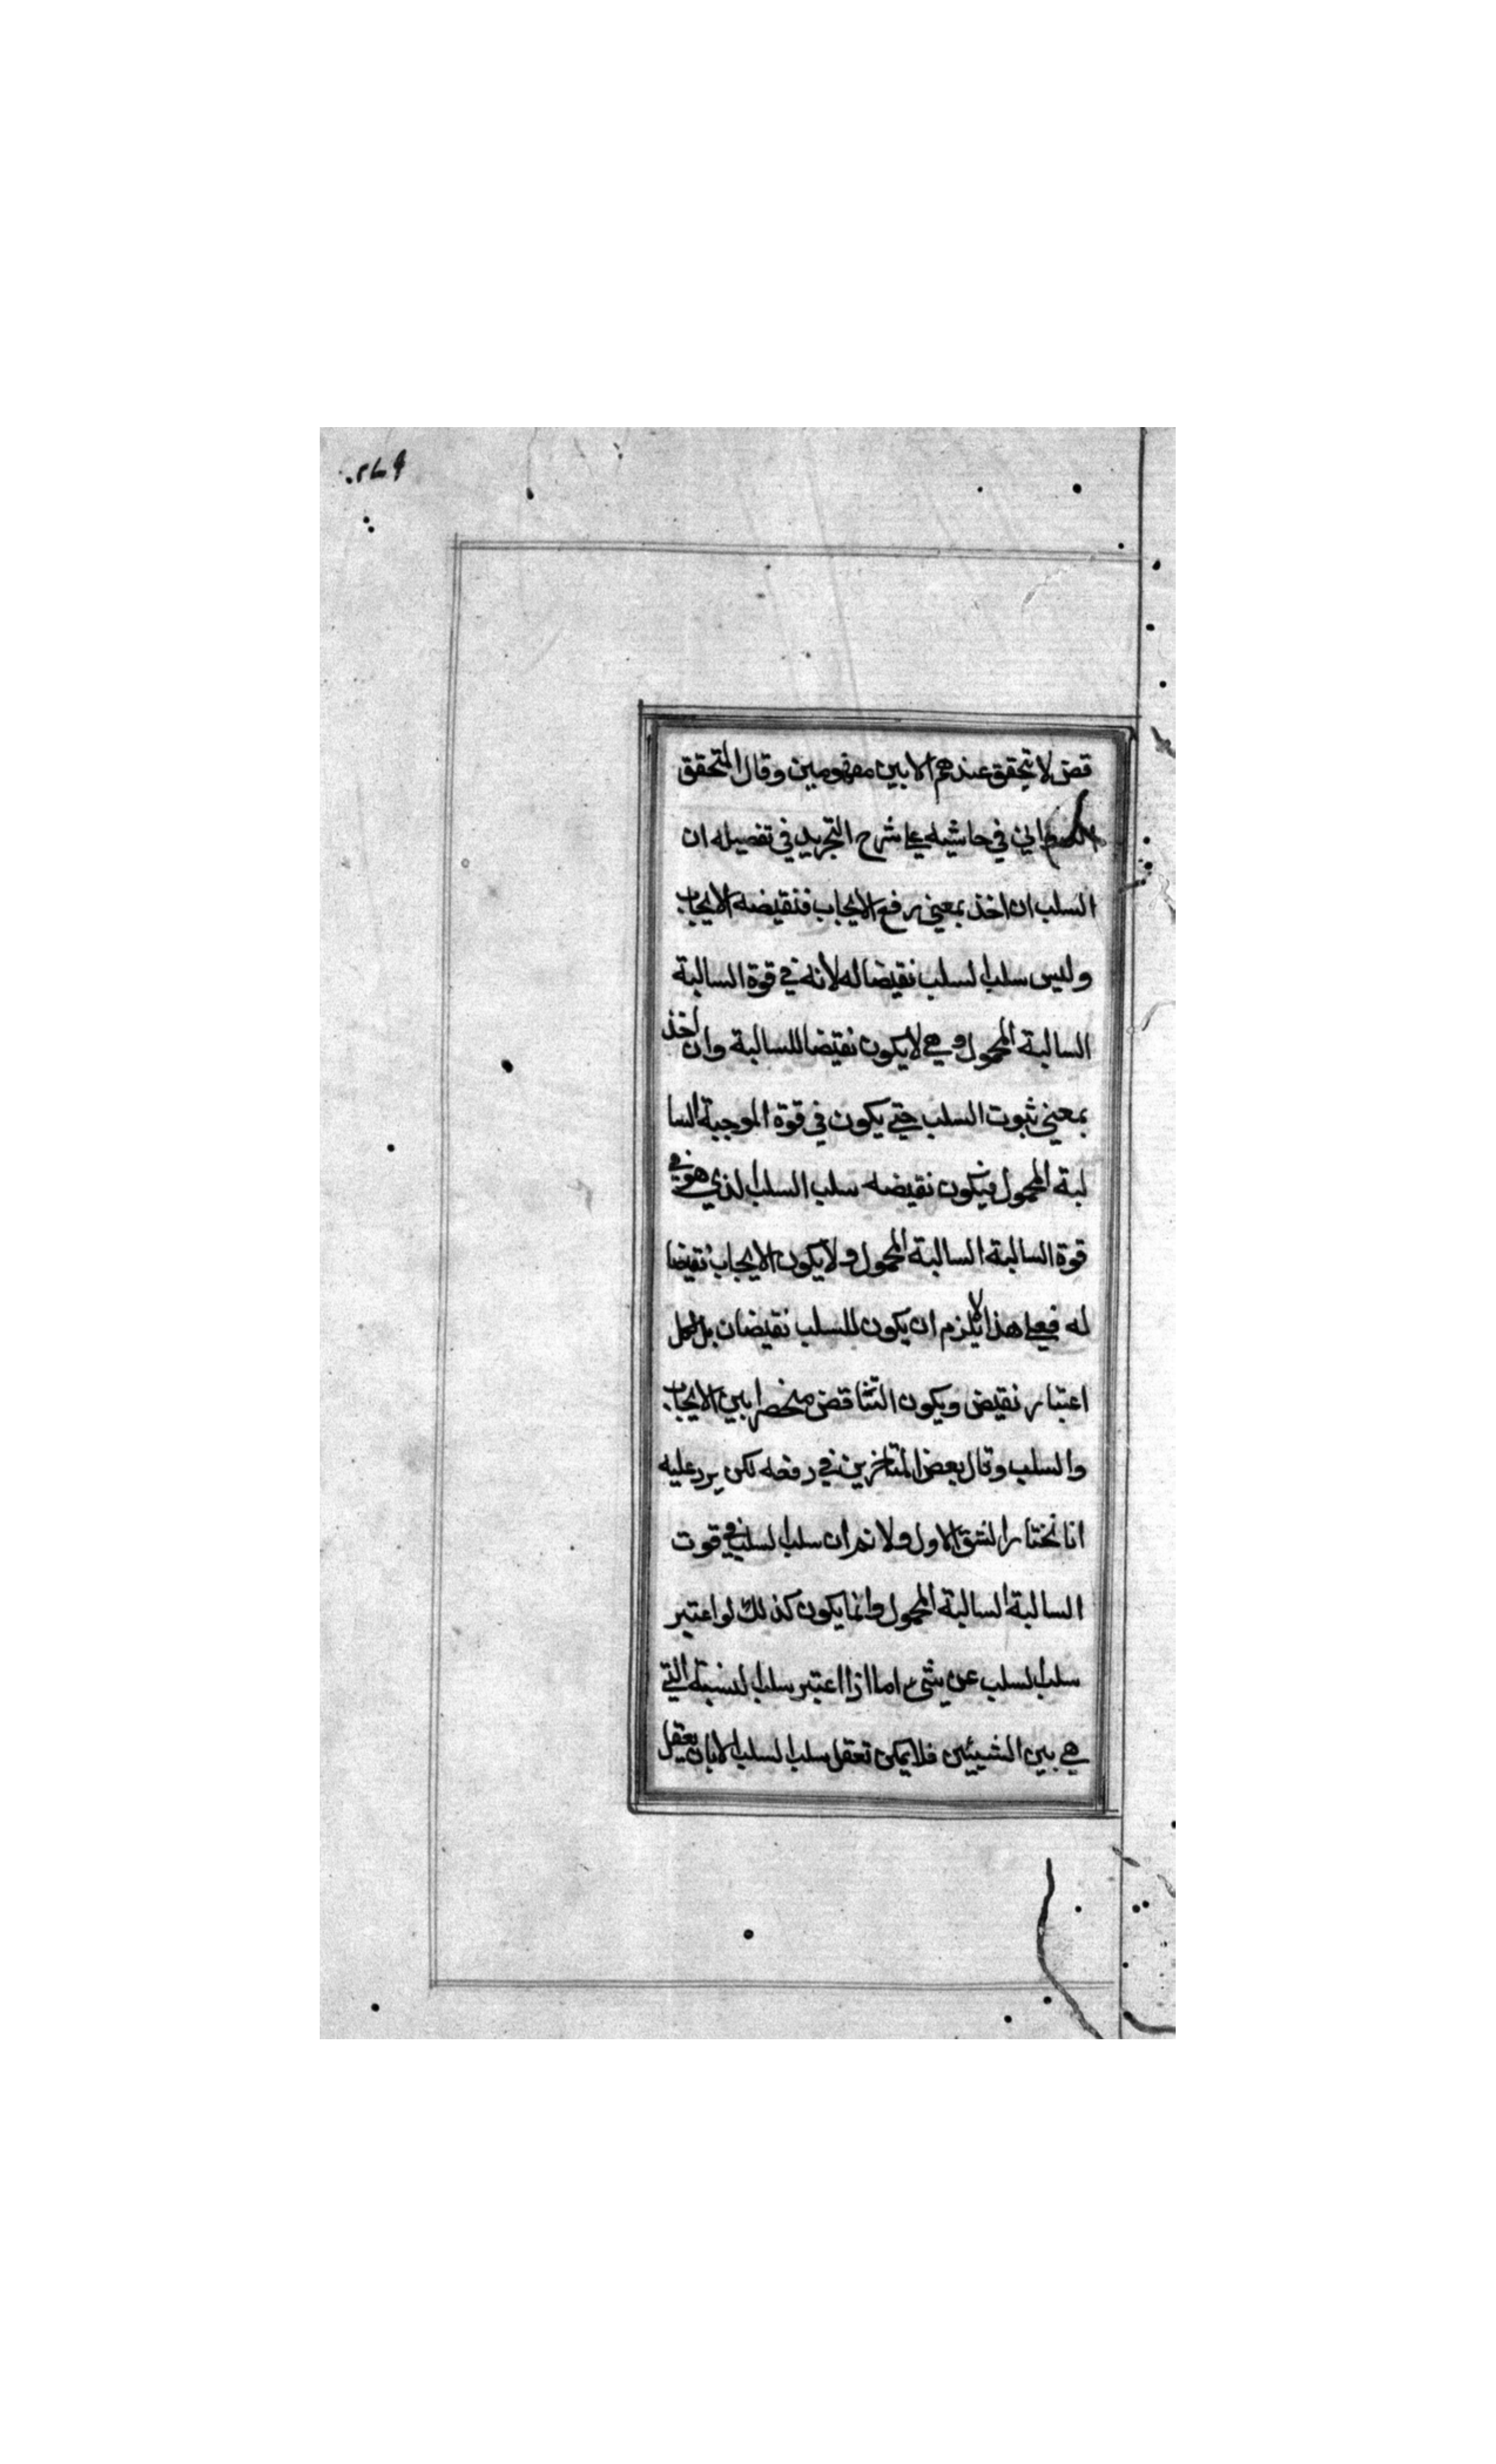 قض لا تحقق عندهم الا بين مفهومين وقال المتحقق
الدواني في حاشيه على شرح التجريد في تفصيله ان
السلب ان اخذ بمعنى رفع الايجاب فنقيضه الايجاب
وليس سلب السلب نقيضا له لانه في قوة السالبة
السالبة المحمول وهي لا يكون نقيضا للسالبة وان اخذ
بمعنى ثبوت السلب حتى يكون في قوة الموجبة السا
لبة المحمول فيكون نقيضه سلب السلب الذي هو في
قوة السالبة السالبة المحمول ولا يكون الايجاب نقيضا
له فعلى هذا لا يلزم ان يكون للسلب نقيضان بل لكل
اعتبار نقيض ويكون التناقض منحصرا بين الايجاب
والسلب وقال بعض المتاخرين في دفعه لكن يرد عليه
انا نختار الشق الاول ولا نم ان سلب السلب في قوت
السالبة السالبة المحمول وانما يكون كذلك لو اعتبر
سلب السلب عن شيء اما اذا اعتبر سلب النسبة التي
هي بين الشيئين فلا يمكن تعقل سلب السلب الا بان يعقل